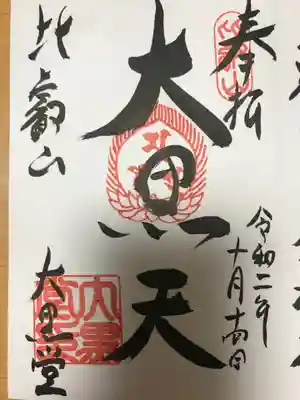 奉拝
令和二年
十月十四日
大黒天
比叡山
大黒堂